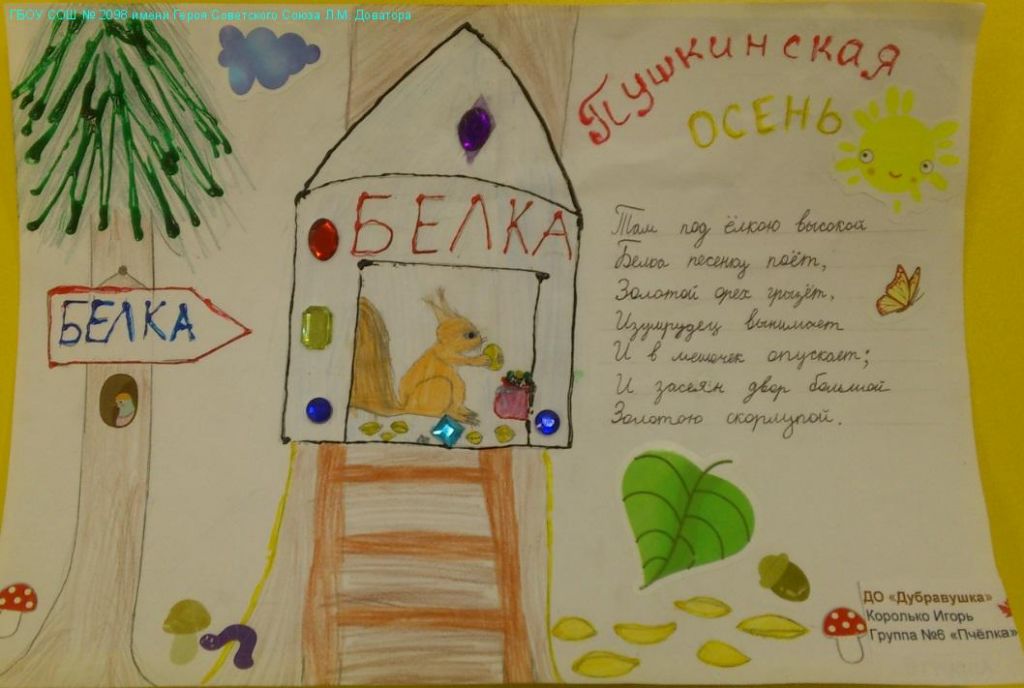 ГБОУ СОШ № 2098 имени Героя Советского Союза Л.М. Доватора
Пушкинская
ОСЕНЬ
БЕЛКА
БЕЛКА
Там под ёлкою высокой
Белка песенку поёт,
Золотой орех грызёт,
Изумрудец вынимает
И в мешочек опускает;
И засеян двор большой
Золотою скорлупой.
ДО «Дубравушка»
Королько Игорь
Группа №6 «Пчёлка»